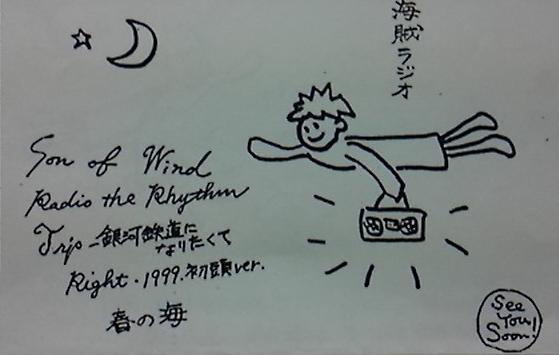 海賊ラジオ
Son of Wind
Radio the Rhythm
Trip-銀河鉄道に
なりたくて
Right・1999.初頭ver.
春の海
See
You
Soon!